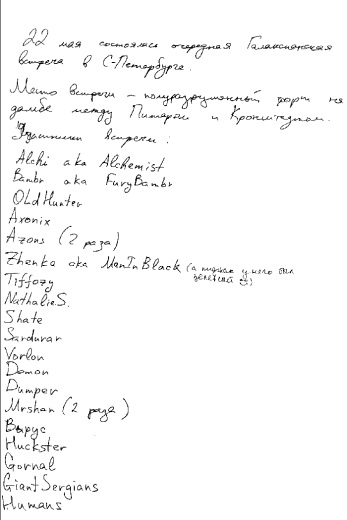 22 мая состоялась очередная Галаксианская
встреча в С-Петербурге.
Место встречи - полуразрушенный форт на
дамбе между Питером и Кронштадтом.
Участники встречи:
Alchi aka Alchemist
Bambr aka FuryBambr
OldHunter
Axonix
Azons (2 раза)
Zhenka aka ManInBlack (а пиджак у него был
зелёный ☺)
Tiffozy
NathalieS.
Shate
Sardurar
Vorlon
Demon
Dumper
Mrshan (2 раза)
Вырус
Huckster
Gornal
GiantSergians
Humans